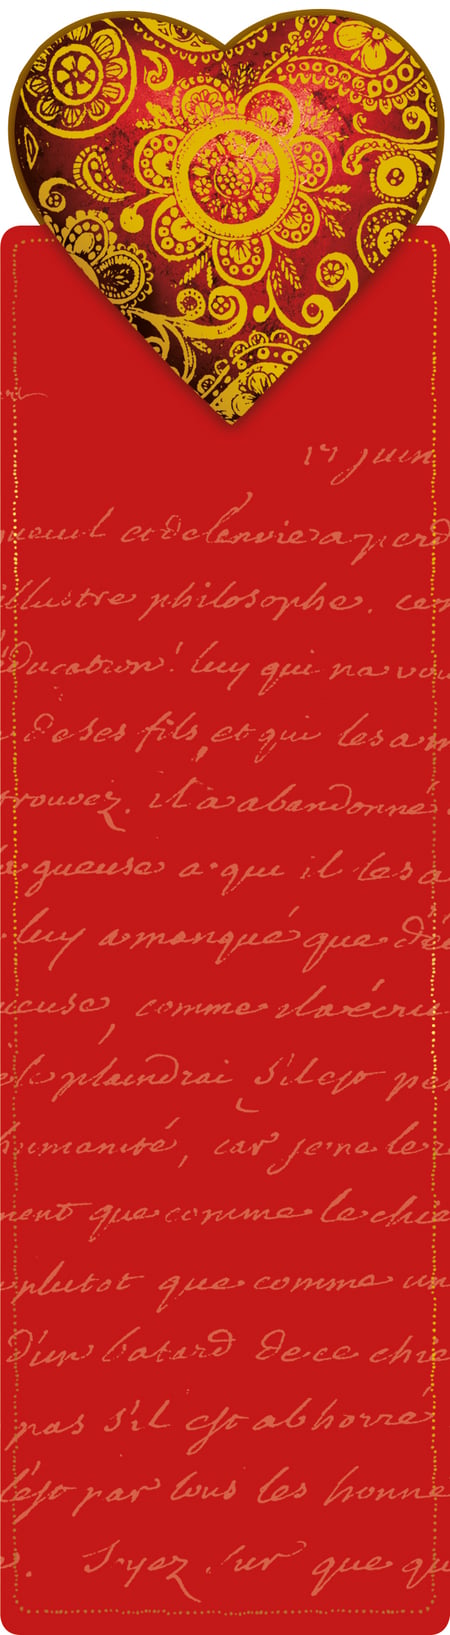 17 juin
orgueuil et de l'envie a perd
illustre philosophe. ce
éducation! luy qui na vou
de ses fils et qui les a
trouvez. il a abandonné
gueuse a qui il les a
luy a manqué que de
ueuse, comme il a écri
plaindrai s'il est pe
humanité, car je ne le
ment que comme le chie
plutot que comme un
d'un batard de ce chie
pas s'il est abhorré
l'est par tous les honne
Soyez sur que qu